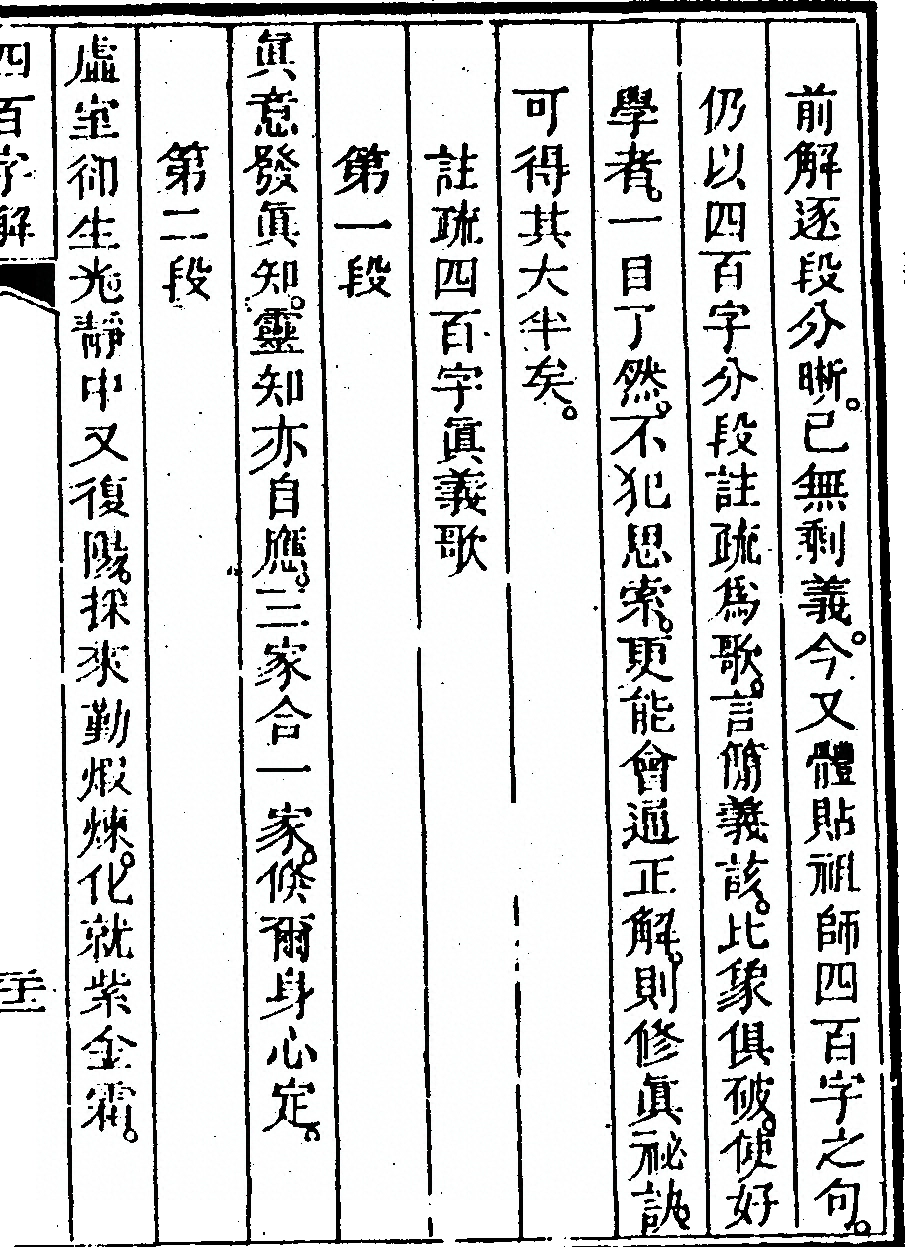 前解逐段分晰。已無剩義。今又體貼祖師四百字之句。
仍以四百字分段註疏爲歌。言簡義該。比象俱破。使好
學者。一目了然。不犯思索。更能會通正解。則修眞祕訣。
可得其大半矣。
註疏四百字眞義歌
第一段
眞意發眞知。靈知亦自應。三家合一家。倐爾身心定。
第二段
虛室卻生光。靜中又復陽。採來勤煅煉。化就紫金霜。
四百字解